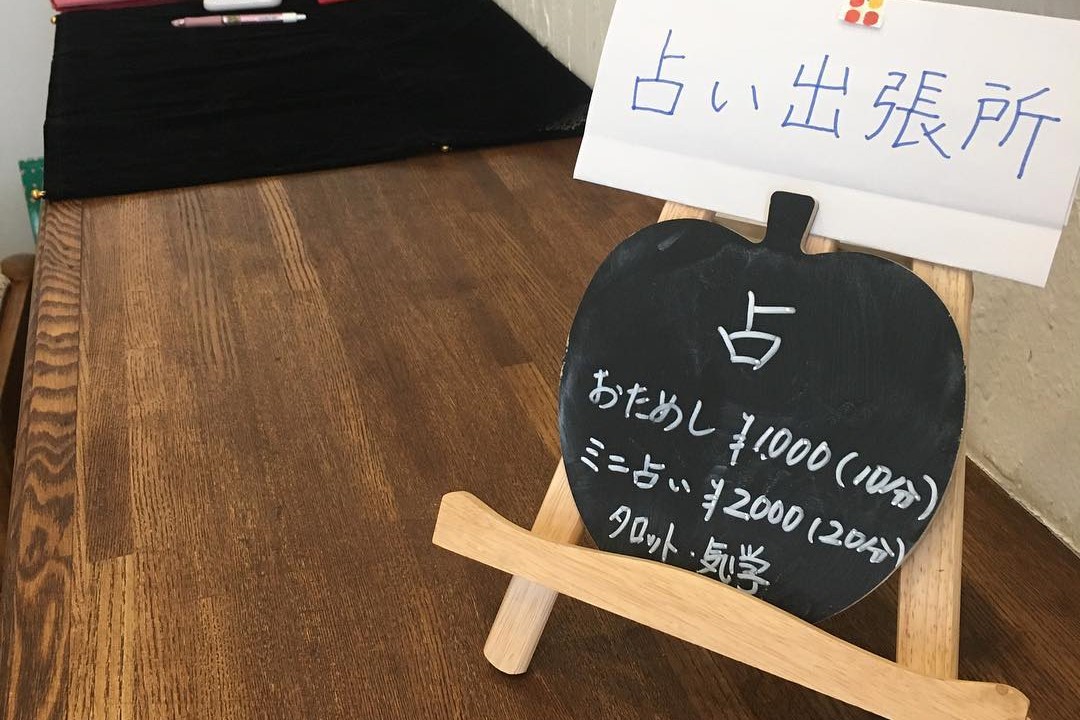 占い出張所
占
おためし ¥1,000(10分)
ミニ占い ¥2000(20分)
タロット・気学